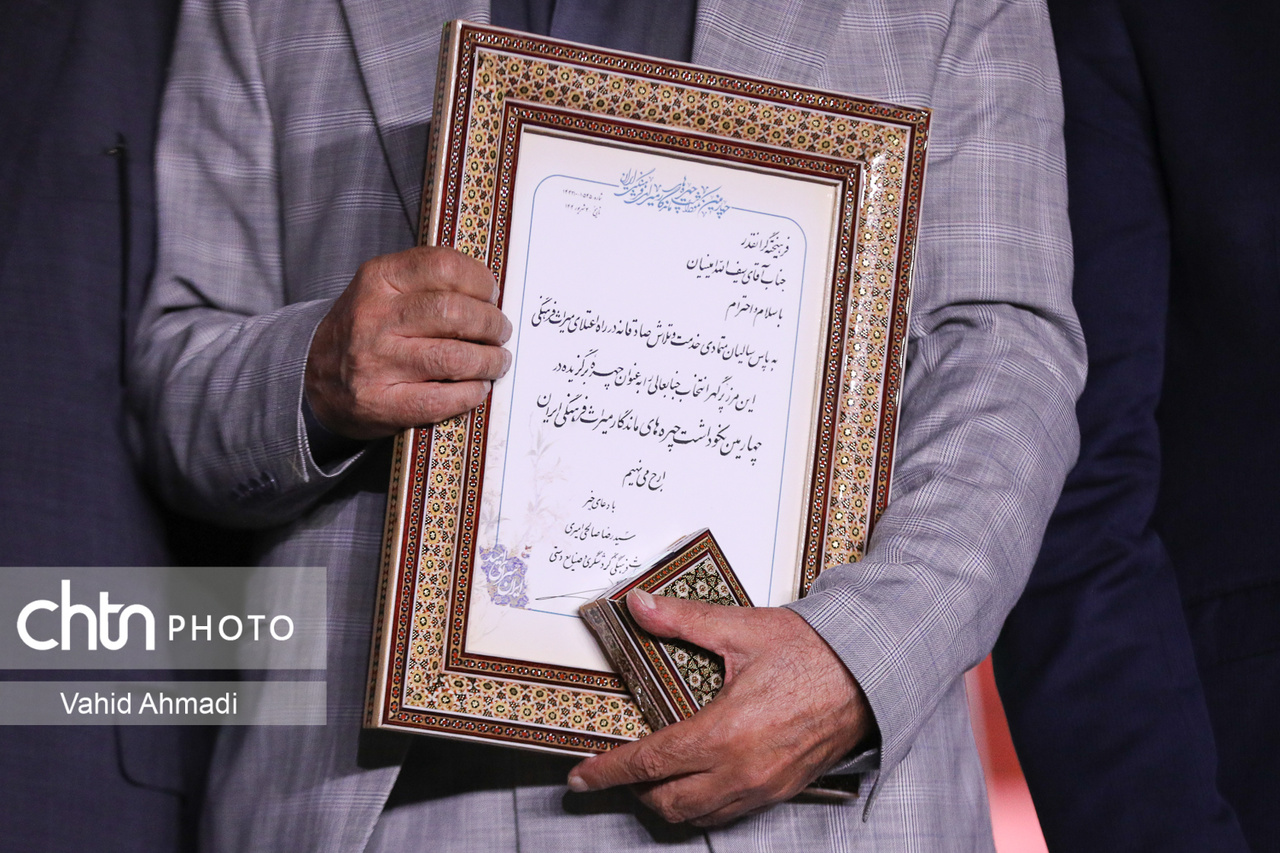 چهارمین نکوداشت چهره‌های ماندگار میراث فرهنگی ایران
فرهیخته گرانقدر
جناب آقای سیف الله امینیان
با سلام و احترام
به پاس سالیان متمادی خدمت و تلاش صادقانه در راه اعتلای میراث فرهنگی
این مرز پرگهر انتخاب جنابعالی را به عنوان چهره برگزیده در
چهارمین نکوداشت چهره های ماندگار میراث فرهنگی ایران
ارج می نهیم
با دعای خیر
سید رضا صالحی امیری
فرهنگی گردشگری و صنایع دستی
chtn PHOTO
Vahid Ahmadi